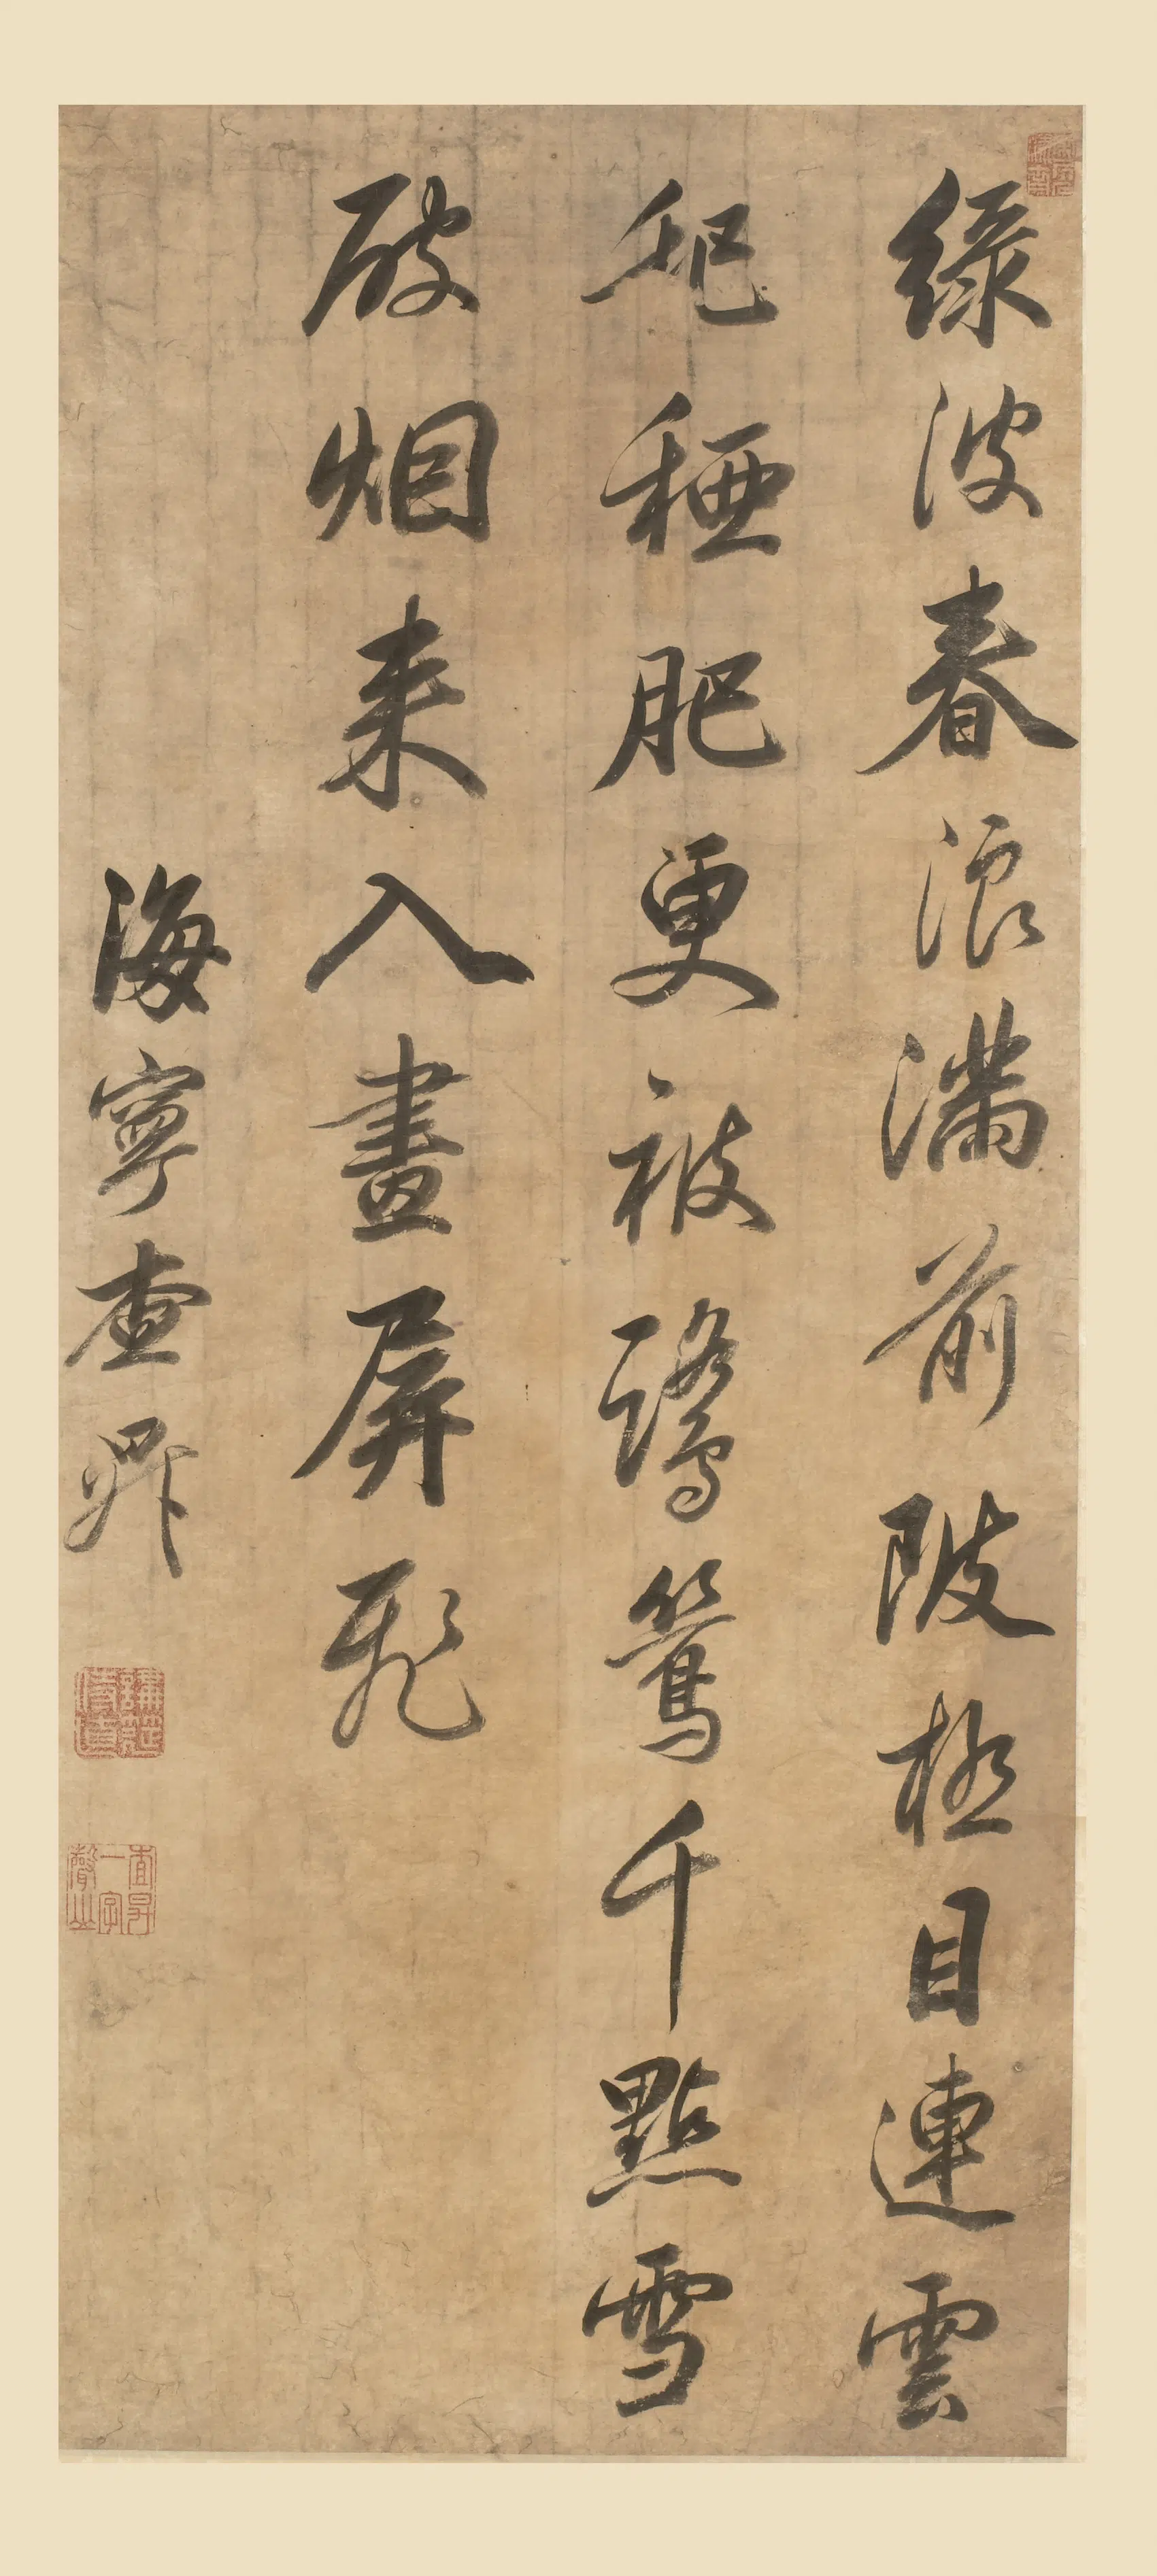 綠波春浪滿前陂極目連雲
䆉稏肥更被鷺鷥千點雪
破烟来入畫屏飛
海寧查昇
查昇一字聲山